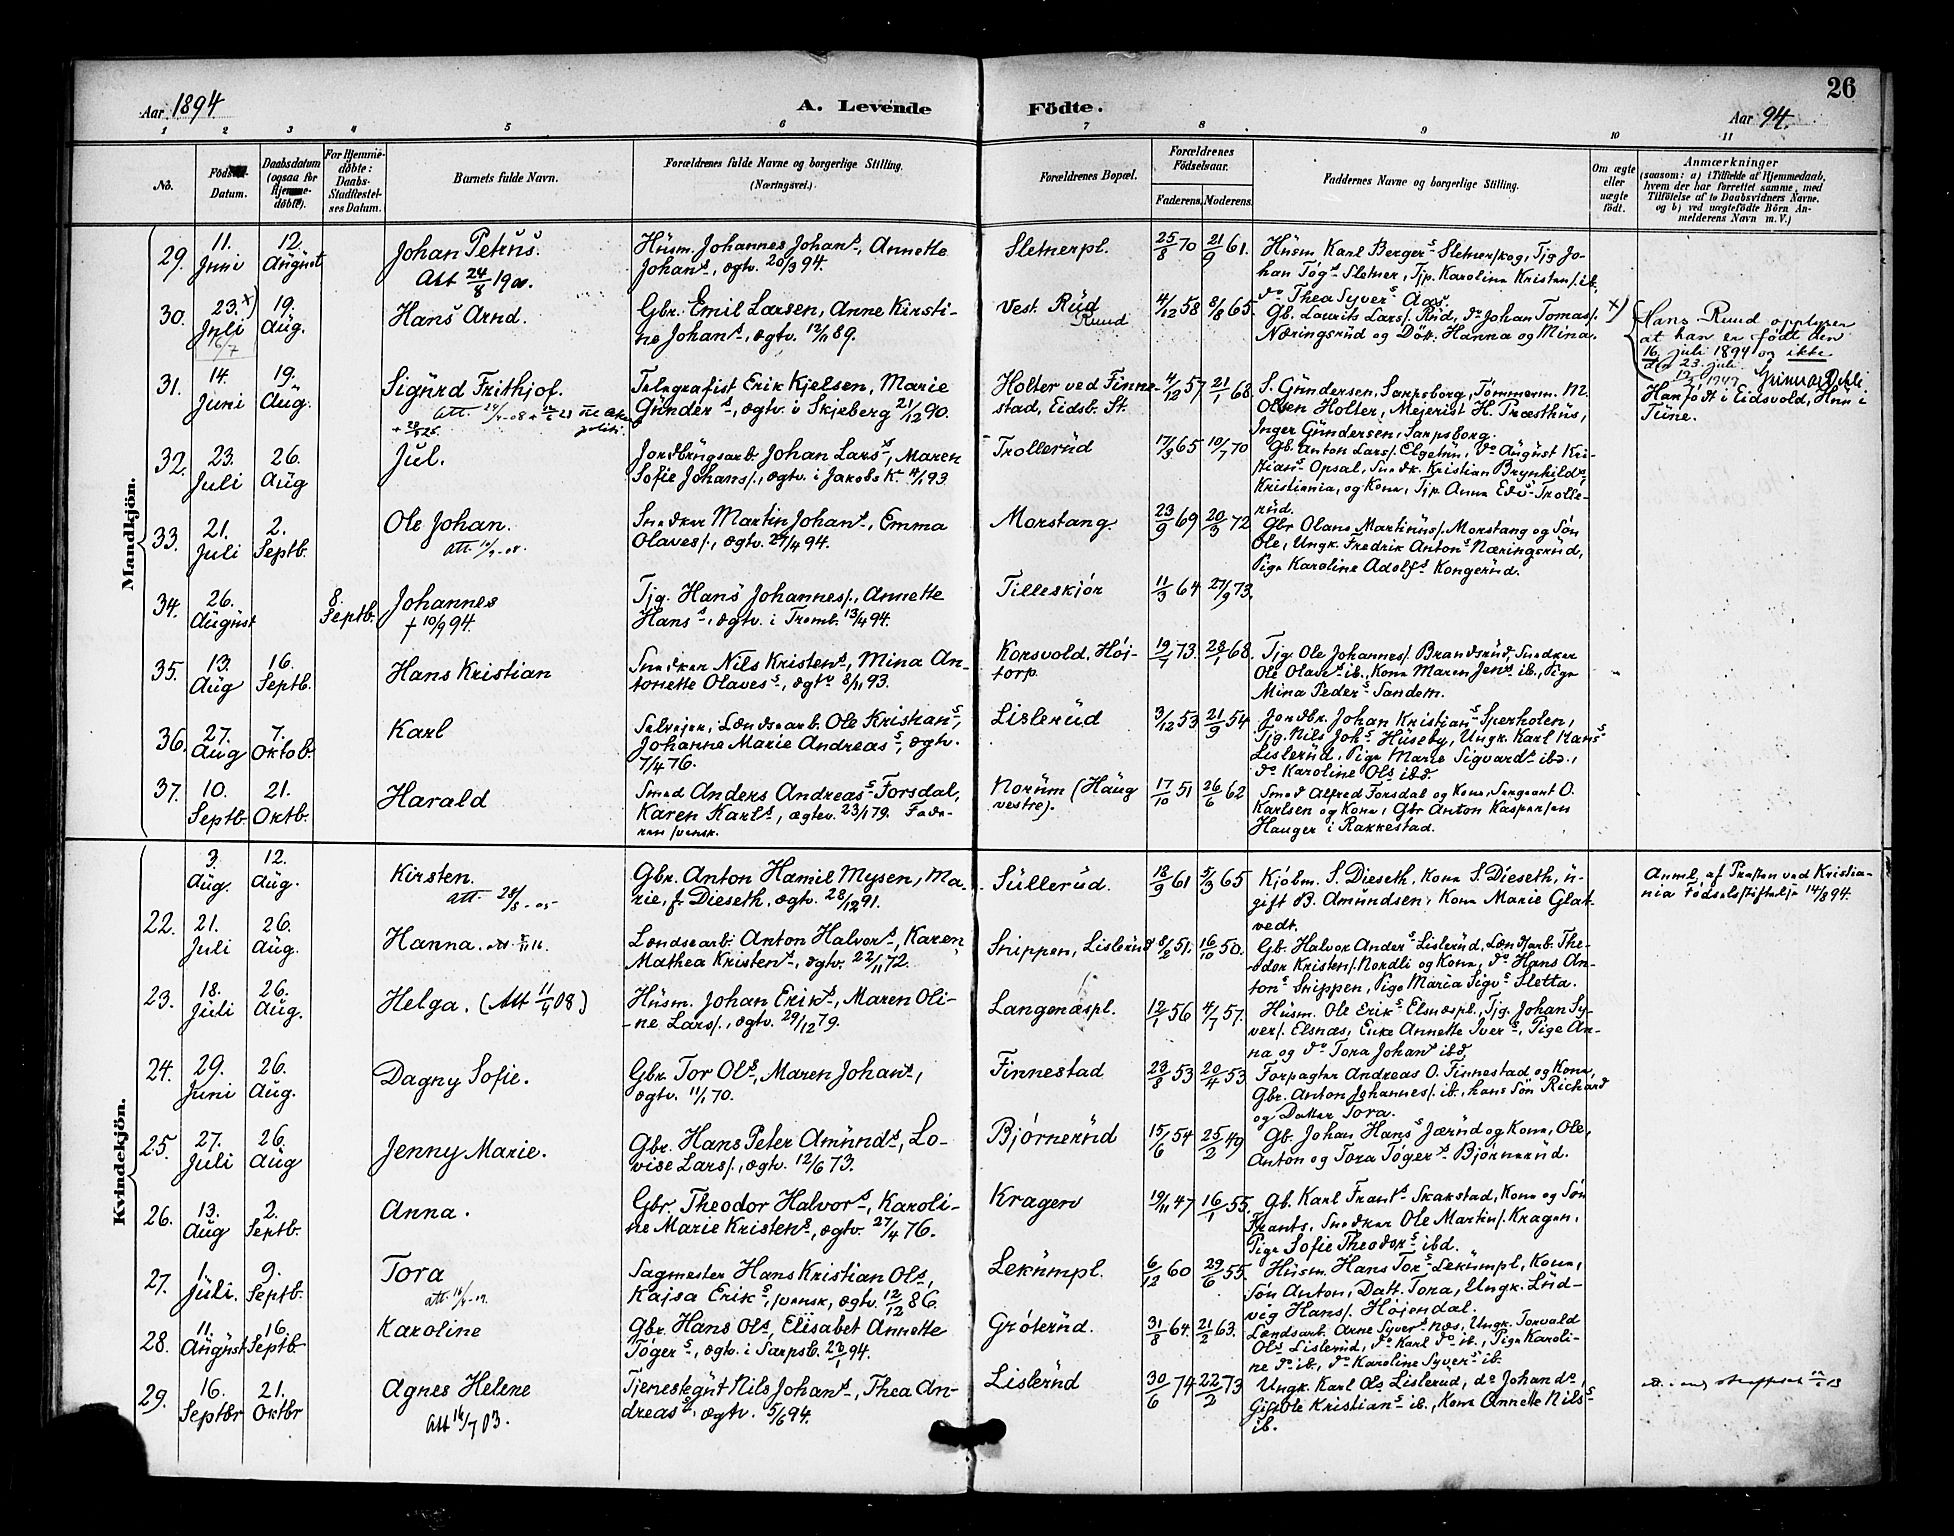 26
Aar 1894
A. Levende
Födte.
Aar 94.
1 2 3 4 5 6 7 8 9 10 11
No.
Födsels-
Datum.
Daabsdatum
(ogsaa for
Hjemme-
döbte).
For Hjemme-
döbte:
Daabs-
Stadfæstel-
ses Datum.
Barnets fulde Navn.
Forældrenes fulde Navne og borgerlige Stilling.
(Næringsvei.)
Forældrenes Bopæl.
Forældrenes
Födselsaar.
Faderens. Moderens.
Faddernes Navne og borgerlige Stilling.
Om ægte
eller
uægte
født.
Anmærkninger
(saasom: a) i Tilfælde af Hjemmedaab,
hvem der har forrettet samme, med
Tilföielse af to Daabsvidners Navne.
og b) ved uægtefödte Börn An-
melderens Navn m. V.)
Mandkjön.
29.
11.
Juni
12.
August
Johan Petrus.
Att 24/8 19
Husm. Johannes Johans., Annette
Johans., ægtv. 20/3 94.
Sletnerpl.
25/8 70
21/9 61.
Husm Karl Bergers. Sletnerskog, Tjg Jo-
han Tøgs. Sletner, Tjp. Karoline Kristens. ib.
do Thea Syvers. Aas.
30.
23. x)
Juli
16/7
19.
Aug.
Hans Arnd.
Gbr. Emil Larsen, Anne Kirsti-
ne Johans., ægtv. 12/11 89.
Vest. Rud
Ruud
4/12 58
8/8 65.
Gb. Laurits Lars. Rud, do Johan Tomas.
Næringsrud og Døtt. Hanna og Mina.
x) Hans Ruud opplyser
at han er født den
16. juli 1894 og ikke
den 23. juli.
31.
14.
Juni
19.
Aug.
Sigurd Frithjof.
Telegrafist Erik Kjelsen, Marie
Gunders., ægtv. i Skjeberg 21/12 90.
Holter ved Finne-
stad, Eidsb. St.
4/12 57
21/1 68.
S. Gundersen, Sarpsborg, Tømmerm. M.
Olsen Holter, Mejerist H. Præsthus,
Inger Gundersen, Sarpsborg.
Han født i Eidsvold, Hun i
Tune.
32.
23.
Juli
26.
Aug
Jul.
Jordbrugsarb. Johan Lars., Maren
Sofie Johans., ægtv. i Jakobs K. 4/1 93
Trollerud
17/3 65
10/7 70
Gb. Anton Lars. Elgetun, do August Kri-
stians. Opsal, Snedk. Kristian Brynhilds.
Kristiania, og Kone, Tjp. Anna Edv. Trolle-
rud.
33.
21.
Juli
2.
Septb.
Ole Johan.
Snedker Martin Johans., Emma
Olaves., ægtv. 27/4 94.
Morstang
23/9 69
20/3 72
Gbr Olans Martinus. Morstang og Søn
Ole, Ungk. Fredrik Antons. Næringsrud,
Pige Karoline Adolfs. Kongerud.
34.
26.
August
8.
Septb.
Johannes
† 10/9 94.
Tjg. Hans Johannes., Annette
Hans., ægtv. i Tromb. 13/4 94.
Tilleskjør
11/3 64
27/9 73.
35.
13.
Aug
16.
Septb.
Hans Kristian
Snedker Nils Kristens., Mina An-
tonette Olaves., ægtv 8/11 93.
Korsvold, Høj-
torp.
19/7 73.
28/1 68.
Tjg. Ole Johannes. Brandsrud, Snedker
Ole Olaves. ib., Kone Maren Jens. ib., Pige
Mina Peders. Sandem.
36.
27.
Aug
7.
Oktob.
Karl
Selvejer, Lændsearb. Ole Kristians.,
Johanne Marie Andreas., ægtv.
7/4 76.
Lislerud
3/12 53
21/9 54
Jordbr. Johan Kristjans. Sperholen,
Tjg. Nils Johs. Huseby, Ungk. Karl Hans.
Lislerud, Pige Marie Sigvards. ibd.,
do Karoline Ols. ibd.
37.
10.
Septb.
21.
Oktb.
Harald
Smed Anders Andreas. Forsdal,
Karen Karls., ægtev. 23/1 79. Fade-
ren svensk.
Norum (Haug
vestre).
17/10 51
26/6 62
Smed Alfred Forsdal og Kone, Sergeant O.
Karlsen og Kone, Gbr Anton Kaspersen
Hauger i Rakkestad.
Kvindekjön.
3.
Aug.
12.
Aug.
Kirsten.
Gbr. Anton Hamil Mysen, Ma-
rie, f. Dieseth, ægtv. 28/12 91.
Sullerud.
18/9 61
5/3 65
Kjøbm. S. Dieseth, Kone S. Dieseth, u-
gift B. Amundsen, Kone Marie Glat-
vedt.
Anml. af Præsten ved Kristia-
nia Fødselsstiftelse 14/8 94.
22.
21.
Juli
26.
Aug.
Hanna.
Lændsearb. Anton Halvors., Karen
Mathea Kristens., ægtv. 22/11 72.
Snippen, Lislerud
8/2 51.
16/10 50.
Gb. Halvor Anders. Lislerud, Lændsarb. The-
odor Kristens. Nordli og Kone, do Hans An-
tons. Snippen, Pige Maria Sigvs. Sletta.
23.
18.
Juli
26.
Aug.
Helga. (Att 11/4 08)
Husm. Johan Eriks., Maren Oli-
ne Lars., ægtv. 29/12 79.
Langenæspl.
12/1 56
4/7 57.
Husm. Ole Eriks. Elsnæspl., Tjg. Johan Sy-
vers. Elsnæs, Enke Annette Ivers., Pige An-
na og do Tora Johans. ibd.
24.
29.
Juni
26.
Aug.
Dagny Sofie.
Gbr. Tor Ols., Maren Johans.,
ægtv. 11/1 70.
Finnestad
23/8 53
20/4 53
Forpagter Andreas O. Finnestad og Kone,
Gbr. Anton Johannes. ib., hans Søn Richard
og Datter Tora.
25.
27.
Juli
26.
Aug
Jenny Marie.
Gbr. Hans Peter Amunds., Lo-
vise Lars., ægtv. 12/6 73.
Bjørnerud
15/6 54
25/2 49
Gb. Johan Hans. Jærud og Kone, Ole,
Anton og Tora Tøgers. Bjørnerud.
26.
13.
Aug
2.
Septb.
Anna.
Gbr. Theodor Halvors., Karoli-
ne Marie Kristens., ægtv. 27/4 76.
Kragerv
19/11 47
16/1 55.
Gb. Karl Frants. Skakstad, Kone og Søn
Frants, Snedker Ole Martins. Kragen,
Pige Sofie Theodors. ibd.
27.
1.
Juli.
9.
Septb.
Tora
Sagmester Hans Kristian Ols.,
Kajsa Eriks., svensk, ægtv. 12/12 86.
Lekumpl.
6/12 60
29/6 55
Husm. Hans Tors. Lekumpl, Kone,
Søn Anton, Datt. Tora, Ungk. Lud-
vig Hans. Højendal.
28.
11.
August
16.
Septb
Karoline
Gbr. Hans Ols., Elisabet Annette
Tøgers., ægtv. i Sarpsb. 23/1 94.
Grøterud.
31/8 64.
21/2 63.
Lændsarb. Arne Syvers. Næs, Ungk. Torvald
Ols. Lislerud, do Karl do ib., Pige Karoli-
ne do ib., do Karoline Syvers. ib.
29.
16.
Septbr
21.
Oktbr
Agnes Helene
Att 14/7 03.
Tjenestegut Nils Johans., Thea An-
dreas., ægtv. 5/6 94.
Lislerud
30/6 74
22/2 73
Ungk. Karl Ols. Lislerud, do Johan do,
Gift Ole Kristians. ib., Kone Annette Nils.
ib.